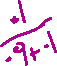 .1
.9+.1